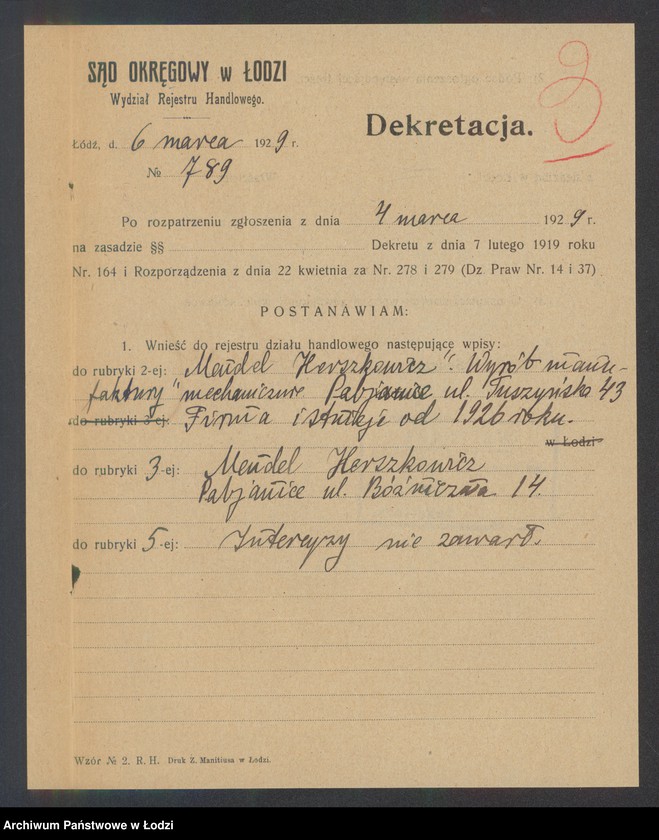 SĄD OKRĘGOWY w ŁODZI
Wydział Rejestru Handlowego.
Dekretacja.
Łódź, d. 6 marca 1929 r.
№ 789
Po rozpatrzeniu zgłoszenia z dnia 4 marca 1929 r.
na zasadzie §§ Dekretu z dnia 7 lutego 1919 roku
Nr. 164 i Rozporządzenia z dnia 22 kwietnia za Nr. 278 i 279 (Dz. Praw Nr. 14 i 37)
POSTANAWIAM:
1. Wnieść do rejestru działu handlowego następujące wpisy:
do rubryki 2-ej: „Mendel Herszkowicz". Wyrób manu-
faktury" mechanicznie Pabjanice ul. Tuszyńska 43
do rubryki 3-ej: Firma istnieje od 1926 roku.
w Łodzi
do rubryki 3-ej: Mendel Herszkowicz
Pabjanice ul. Bóźniczna 14.
do rubryki 5-ej: Intercyzy nie zawarł.
Wzór № 2. R. H. Druk Z. Manitiusa w Łodzi.
Archiwum Państwowe w Łodzi